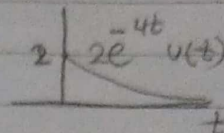 2 2e^-4t u(t)
t